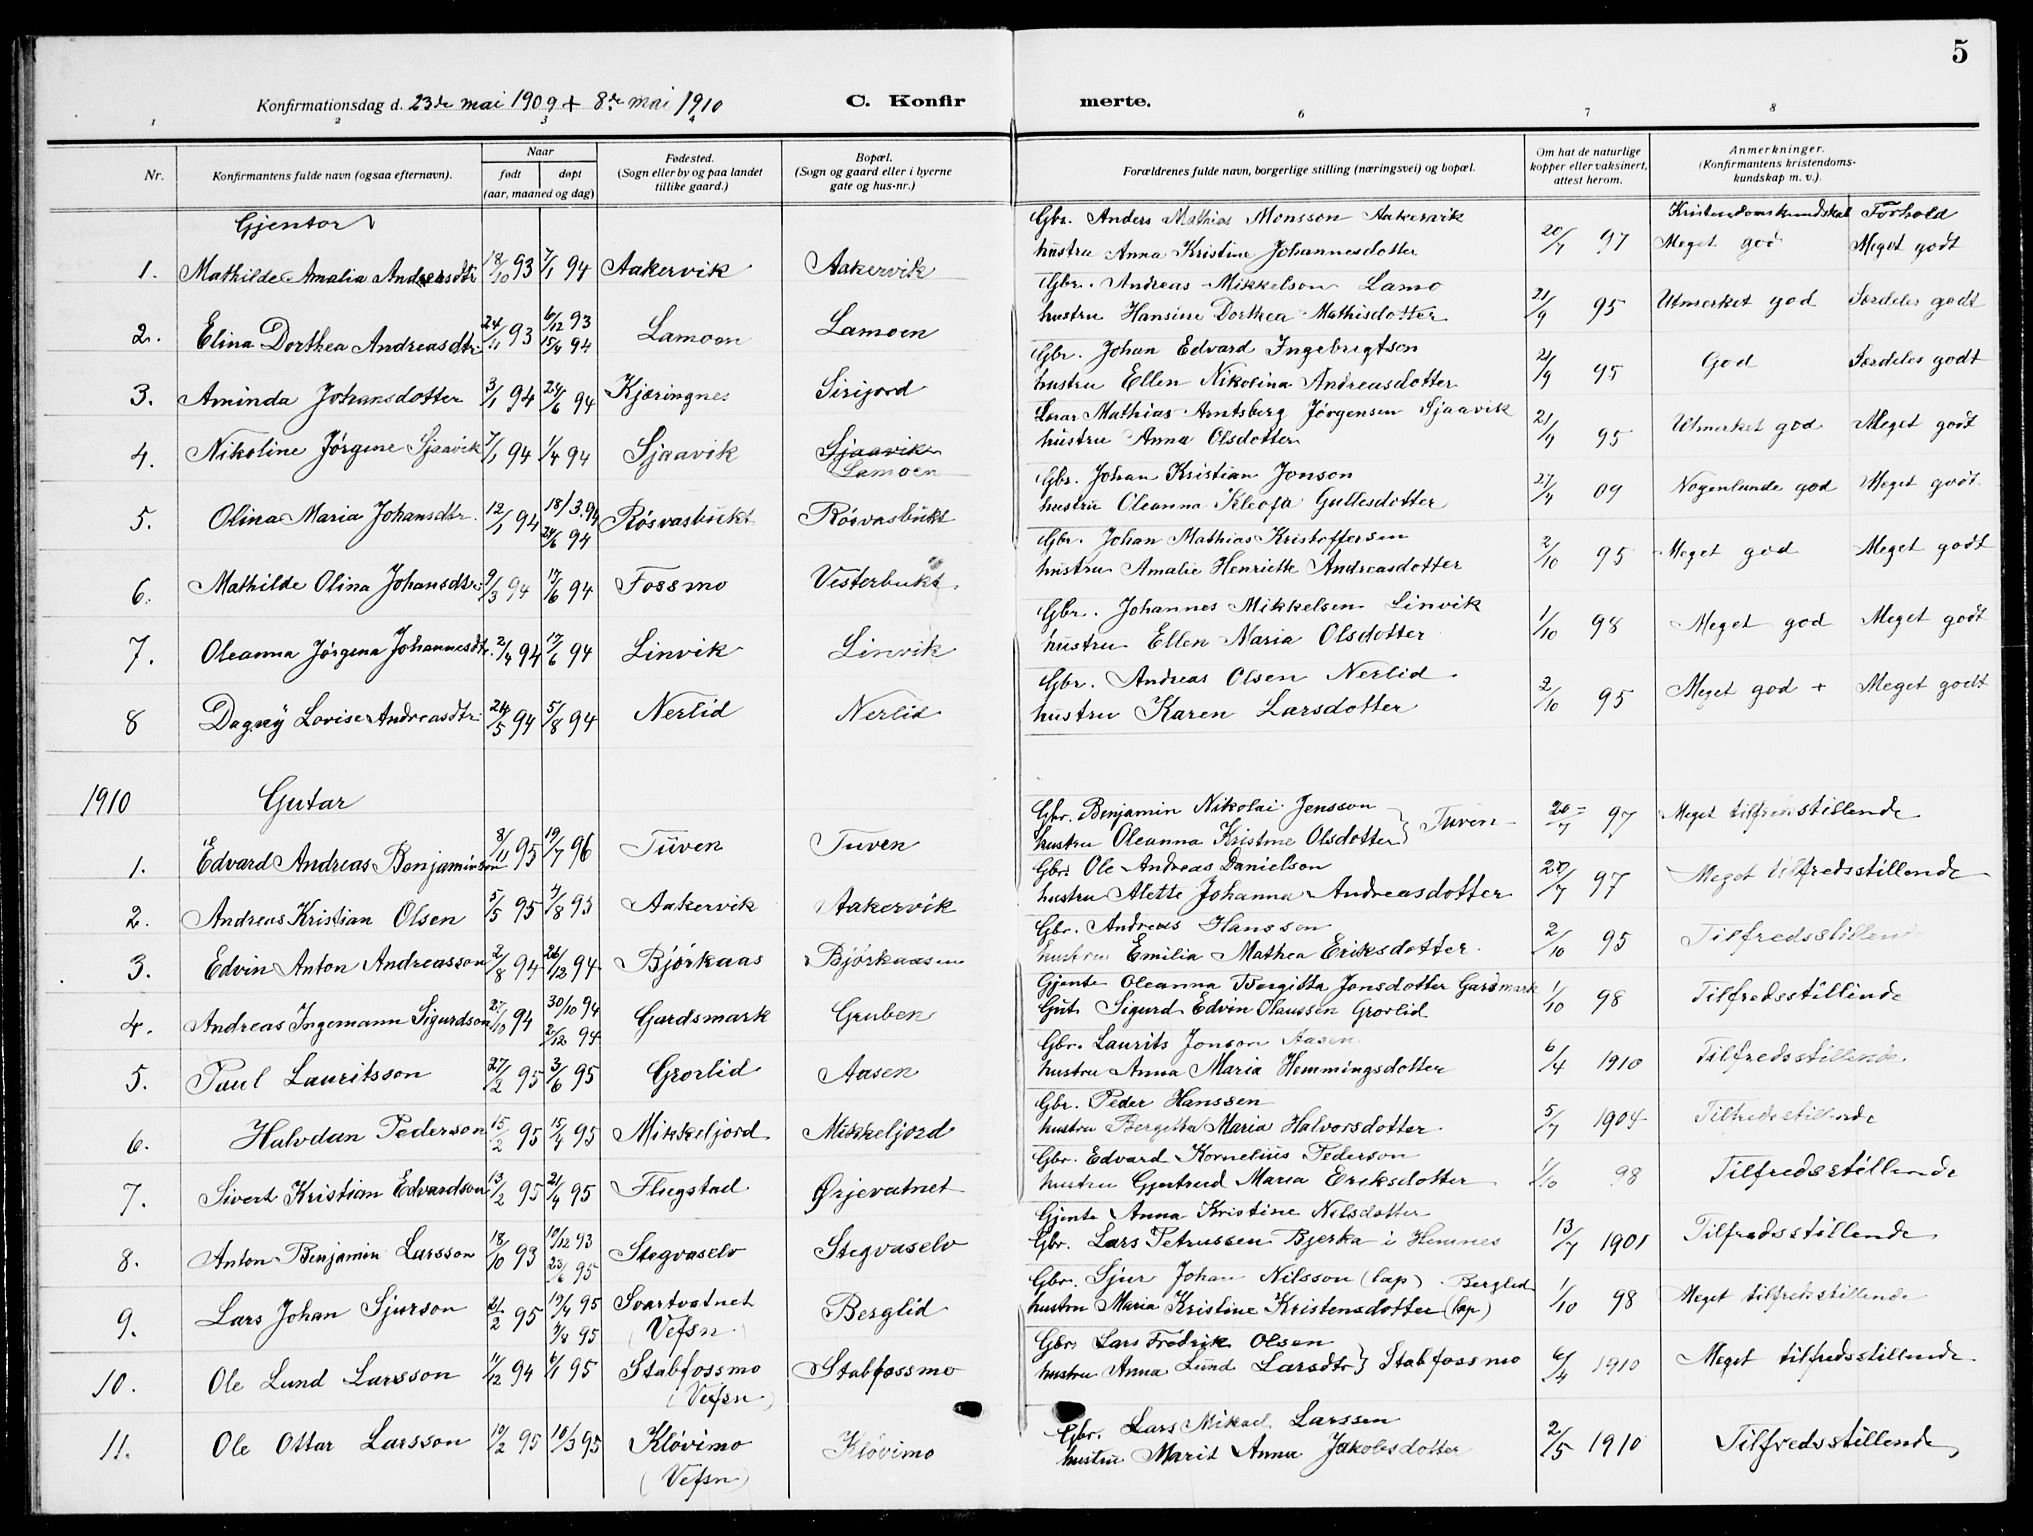 5
Konfirmationsdag d. 23de mai 1909 + 8de mai 1910
C. Konfirmerte.
1 2 3 4 6 7 8
Nr. Konfirmantens fulde navn (ogsaa efternavn). Naar født døpt (aar, maaned og dag) Fødested. (Sogn eller by og paa landet tillike gaard.) Bopæl. (Sogn og gaard eller i byerne gate og hus-nr.) Forældrenes fulde navn, borgerlige stilling (næringsvei) og bopæl. Om hat de naturlige kopper eller vaksinert, attest herom. Anmerkninger. (Konfirmantens kristendoms-kundskap m. v.).
Gjentor Kristendomskundskab Forhold
Gbr. Anders Mathias Monsson Aakervik
1. Mathilde Amalia Andersdtr 18/10 93 7/1 94 Aakervik Aakervik hustru Anna Kristine Johannesdotter 20/7 97 Meget god Meget godt
Gbr. Andreas Mikkelson Lamo
2. Elina Dorthea Andreasdtr 24/11 93 6/12 93 15/4 94 Lamoen Lamoen hustru Hansine Dorthea Mathisdotter 21/9 95 Utmerket god Særdeles godt
Gbr. Johan Edvard Ingebrigtson
3. Aminda Johansdotter 3/1 94 24/6 94 Kjæringnes Sirijord hustru Ellen Nikolina Andreasdotter 21/9 95 God Særdeles godt
Lærar Mathias Arntsberg Jørgensen Sjaavik
4. Nikoline Jørgine Sjaavik 7/1 94 1/4 94 Sjaavik Sjaavik Lamoen hustru Anna Olsdotter 21/9 95 Utmerket god Meget godt
Gbr. Johan Kristian Jonson
5. Olina Maria Johansdtr. 12/1 94 18/3.94 24/6 94 Røsvasbukt Røsvasbukt hustru Oleanna Kleofa Gullesdotter 27/4 09 Nogenlunde god Meget godt
Gbr. Johan Mathias Kristoffersen
6. Mathilde Olina Johansdtr. 9/3 94 17/6 94 Fossmo Vesterbukt hustru Amalie Henriette Andreasdotter 2/10 95 Meget god Meget godt
Gbr. Johannes Mikkelsen Linvik
7. Oleanna Jørgena Johannesdtr. 2/4 94 17/6 94 Linvik Linvik hustru Ellen Maria Olsdotter 1/10 98 Meget god Meget godt
Gbr. Andreas Olsen Nerlid
8 Dagny Lovise Andreasdtr. 24/5 94 5/8 94 Nerlid Nerlid hustru Karen Larsdotter 2/10 95 Meget god + Meget godt
1910 Gutar
Gbr. Benjamin Nikolai Jensson
1. Edvard Andreas Benjaminson 8/11 95 19/7 96 Tuven Tuven hustru Oleanna Kristine Olsdotter } Tuven 20/7 97 Meget tilfredsstillende
Gbr. Ole Andreas Danielson
2. Andreas Kristian Olsen 5/5 95 4/8 95 Aakervik Aakervik hustru Alette Johanna Andreasdotter 20/7 97 Meget tilfredsstillende
Gbr. Andreas Hansson
3. Edvin Anton Andreasson 2/8 94 26/12 94 Bjørkaas Bjørkaasen hustru Emilia Mathea Eriksdotter. 2/10 95 Tilfredsstillend
Gjente Oleanna Bergitta Jonsdotter Gardsmark
4. Andreas Ingemann Sigurdson 27/10 94 30/10 94 2/12 94 Gardsmark Gruben Gut Sigurd Edvin Olaussen Grovlid 1/10 98 Tilfredsstillende
Gbr. Laurits Jonson Aasen
5. Paul Lauritsson 27/2 95 3/6 95 Grorlid Aasen hustru Anna Maria Hemmingsdotter 6/4 1910 Tilfredsstillende.
Gbr. Peder Hanssen
6. Halvdan Pederson 15/2 95 15/4 95 Mikkeljord Mikkeljord hustru Bergitta Maria Halvorsdotter 5/7 1904 Tilfredsstillende
Gbr. Edvard Kornelius Pederson
7. Sivert Kristian Edvardson 13/2 95 21/4 95 Flugstad Ørjevatnet hustru Gjertrud Maria Eriksdotter 1/10 98 Tilfredsstillende
Gjente Anna Kristine Nilsdotter
8. Anton Benjamin Larsson 18/10 93 10/12 93 23/6 95 Stegvaselv Stegvaselv Gbr. Lars Petrussen Bjerka i Hemnes 13/7 1901 Tilfredsstillende
Gbr. Sjur Johan Nilsson (lap) Berglid
9. Lars Johan Sjurson 21/2 95 19/4 95 4/8 95 Svartvatnet (Vefsn) Berglid hustru Maria Kristine Kristensdotter (lap) 1/10 98 Meget tilfredsstillende
Gbr. Lars Fredrik Olsen
10. Ole Lund Larsson 11/12 94 6/1 95 Stabfossmo (Vefsn) Stabfossmo hustru Anna Lund Larsdtr } Stabfossmo 6/4 1910 Meget tilfredsstillende
Gbr. Lars Mikael Larssen
11. Ole Ottar Larsson 10/2 95 10/3 95 Kløvimo (Vefsn) Kløvimo hustru Marit Anna Jakobsdotter 2/5 1910 Tilfredsstillende